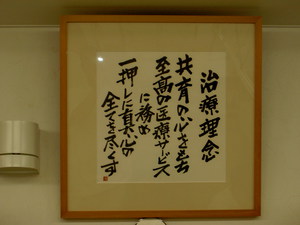 治療理念
共育の心をもち
至高の医療サービス
に務め
一押しに真心の
全てを尽くす